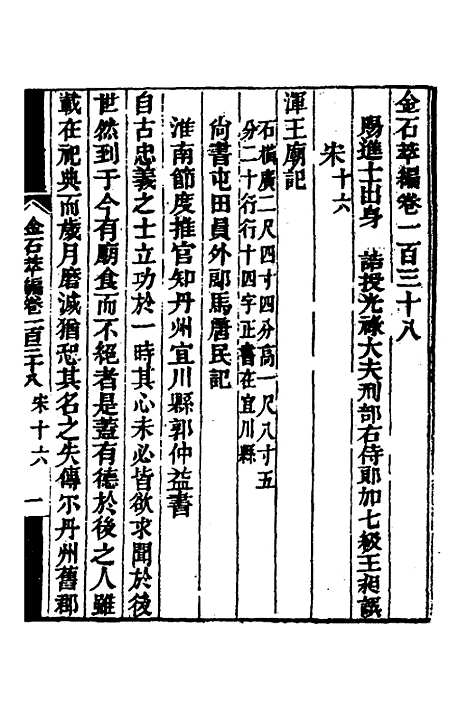 金石萃編卷一百三十八
賜進士出身　誥授光祿大夫刑部右侍郎加七級王昶譔
宋十六
渾王廟記
石橫廣二尺四寸四分高一尺八寸五
分二十行行十四字正書在宜川縣
尙書屯田員外郎馬唐民記
淮南節度推官知丹州宜川縣郭仲益書
自古忠義之士立功於一時其心未必皆欲求聞於後
世然到于今有廟食而不絕者是蓋有德於後之人雖
載在祀典而歲月磨滅猶恐其名之失傳尒丹州舊郡
金石萃編卷一百三十八　宋十六　一